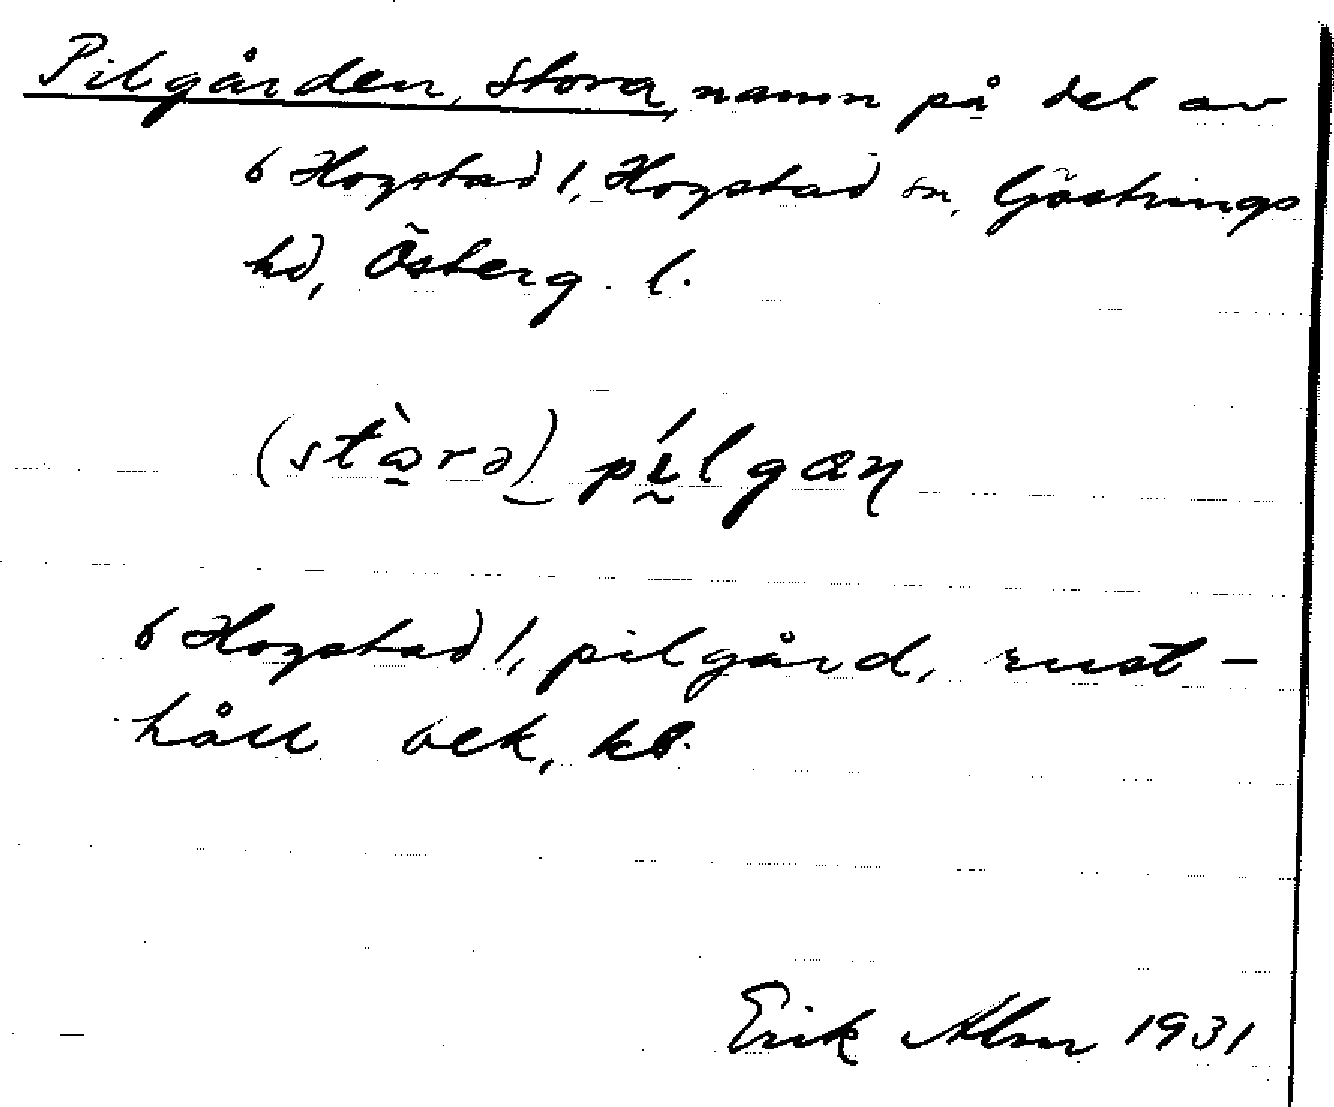 Pilgården, Stora, namn på del av
6 Hogstad 1, Hogstad sn, Göstrings
hd, Österg. l.
(stɷ̀rə) pílgaɳ
6 Hogstad 1, pilgård, rust-
håll oek, kB.
Erik Alm 1931